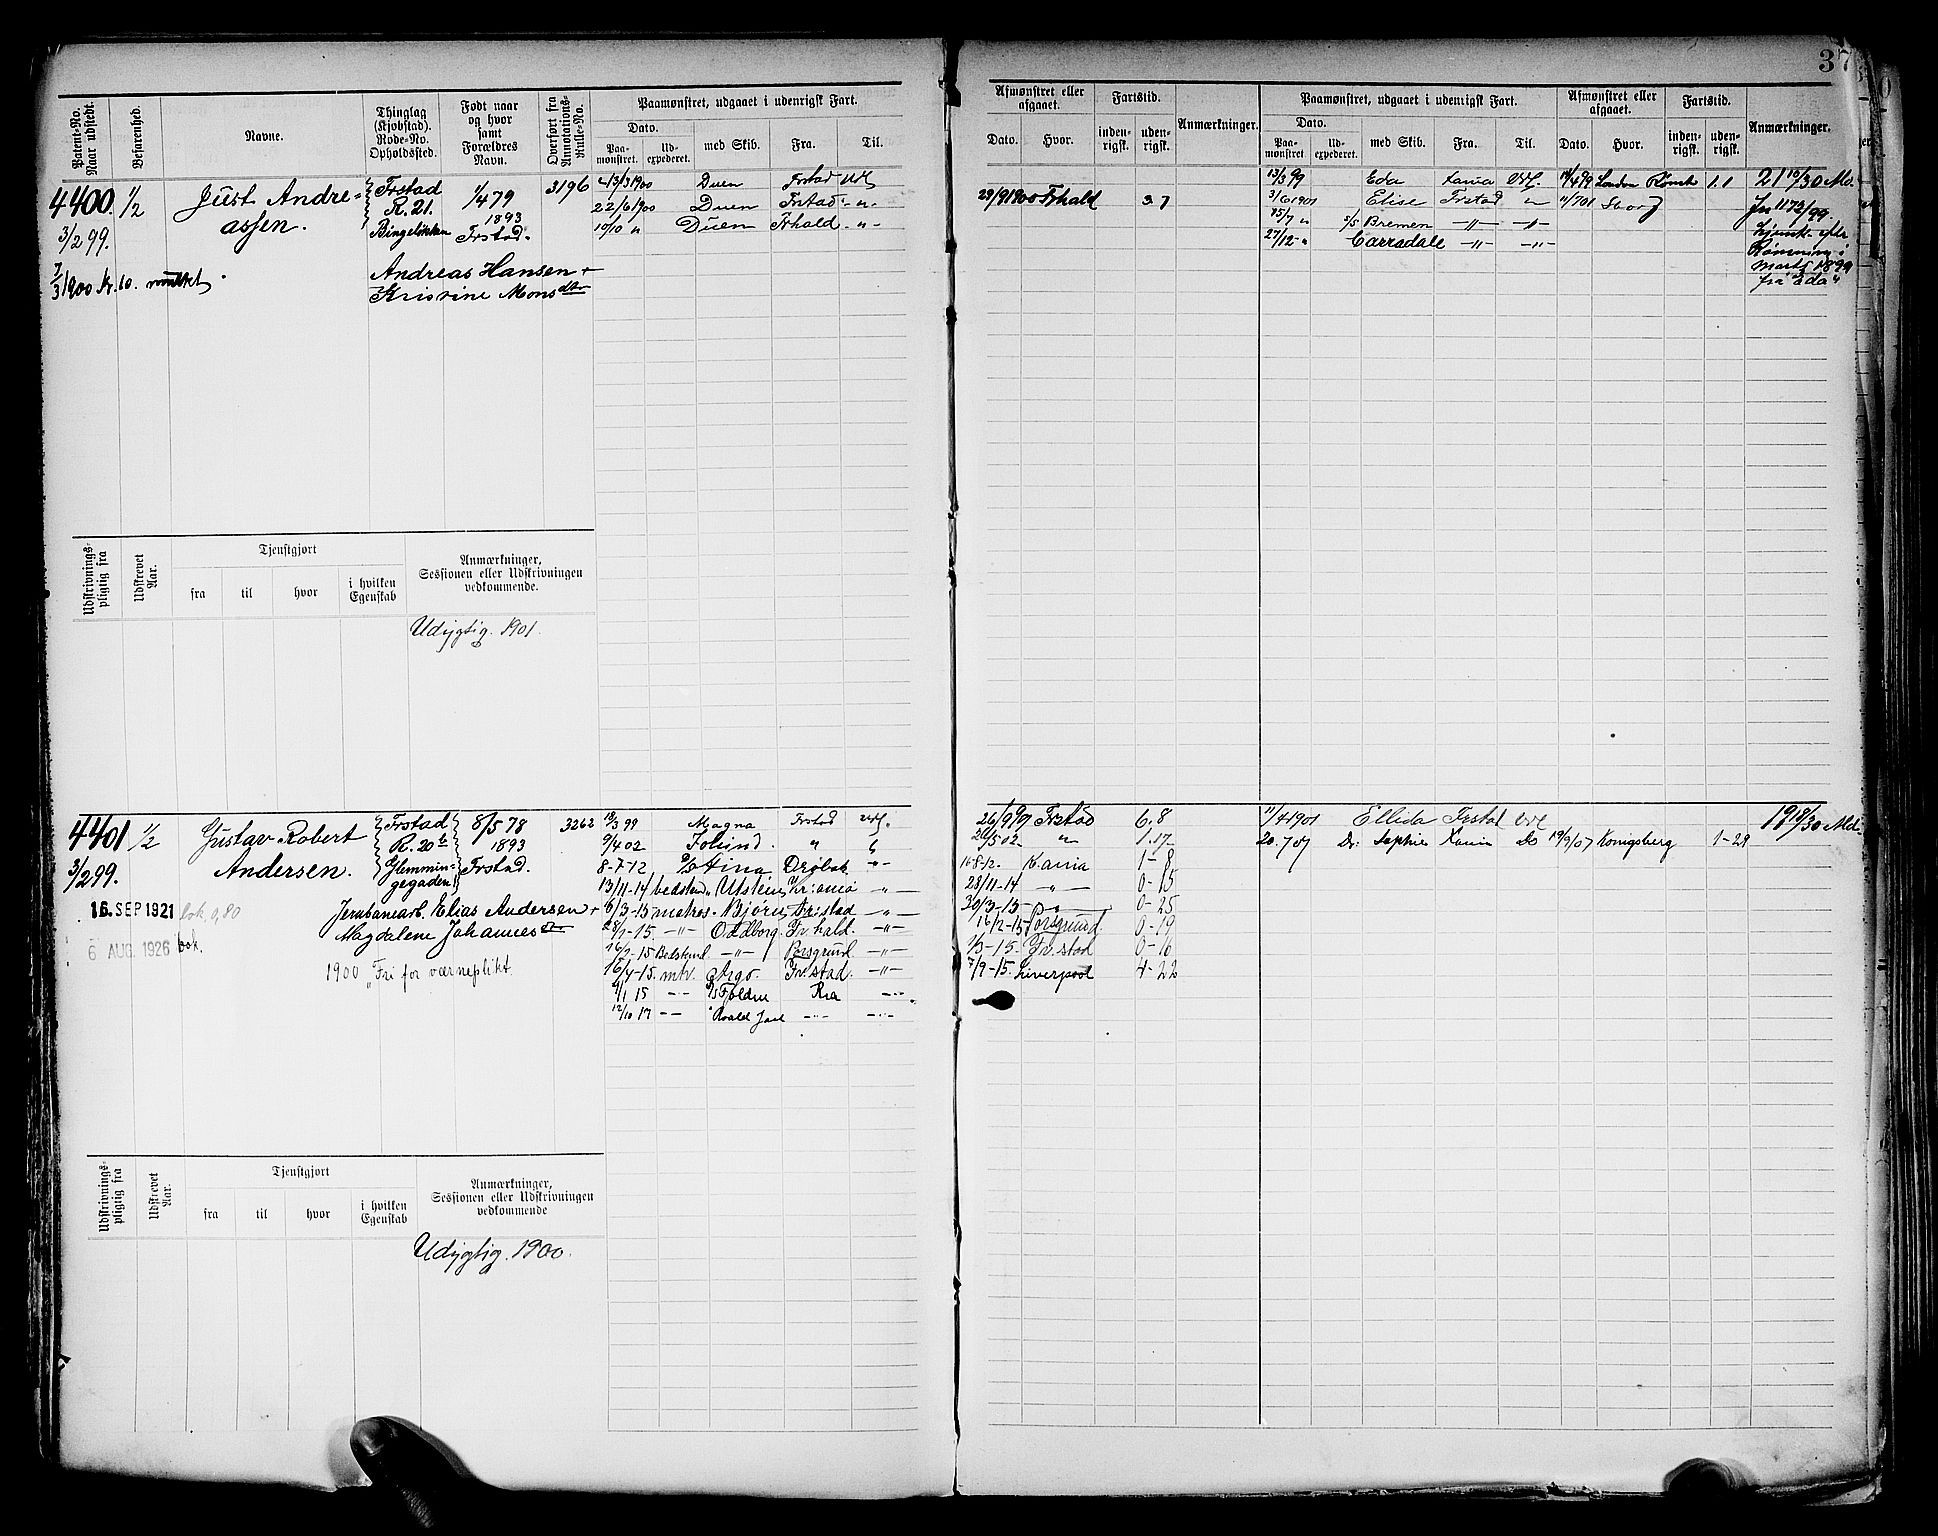 37
Patent-No. Naar udstedt.
Befarenhed.
Navne.
Thinglag (Kjøbstad). Rode-No. Opholdssted.
Født naar og hvor samt Forældres Navn.
Overført fra Annotations-Rulle-No.
Paamønstret, udgaaet i udenrigsk Fart.
Dato.
Paa-mønstret.
Ud-expederet.
med Skib.
Fra.
Til.
Afmønstret eller afgaaet.
Dato.
Hvor.
Fartstid.
inden-rigsk.
uden-rigsk.
Anmærkninger.
Paamønstret, udgaaet i udenrigsk Fart.
Dato.
Paa-mønstret
Ud-expederet.
med Skib.
Fra.
Til.
Afmønstret eller afgaaet.
Dato.
Hvor.
Fartstid.
inden-rigsk.
uden-rigsk.
Anmærkninger.
4400. 1/2 Just Andre-
assen.
3/2 99.
7/3 1900 kr. 10. mulktet
Frstad
R. 21.
Bingeløkken
1/4 79
1893
Frstad.
3196
Andreas Hansen +
Kristine Monsdtr
13/3 1900 Duen Frstad Udl
22/6 1900 Duen Frstad " "
19/10 " Duen Frhald - " -
29/9 1900 Frhald 3 7
13/3 99 Eda Xania Udl. 14/4 99 London Rømt 1.1
3/6 1901 Elise Frstad " 11/7 01
15/7 " S/S Bremen - " - - " -
27/12 - " Carradale - " - - " -
21 10/30 Md.
Jn 1173/99.
efter
Rømning i
Marts 1899
fra "Eda"
Udskrivnings-pligtig fra
Udskrevet Aar.
Tjenstgjort
fra
til
hvor
i hvilken Egenskab
Anmærkninger, Sessionen eller Udskrivningen vedkommende.
Udygtig. 1901.
4401 1/2 Gustav Robert
Andersen.
3/2 99.
16. SEP 1921 bok 0,80
6 AUG. 1926 bok.
Frstad
R. 20 b
Glemmin-
gegaden
8/5 78
1893
Frstad.
3262
Jernbanearb. Elias Andersen +
Magdalene Johannesdr
1900 "Fri for værneplikt
18/3 99 Magna Frstad Udl.
9/4 02 "
8-7-12 Stina Drøbak - " -
13/11-14 bedstmd. Utstein Kr:ania - " -
6/3-15 matros. Bjørn Fr.stad - " -
28/1-15. - " - Oddborg. Fr.hald. - " -
16/2-15 Bedstmd - " - Porsgrund. - " -
15/4-15. mtr. Argo. Fr.stad. - " -
9/1 15 - " - S/S Fjeldne Kra - " -
12/10 17 - " - " Roald Jarl - " - - " -
26/9 99 Frstad 6,8
28/5 02 " 1.17
16-8-12. Xania 1-8
28/11-14 - " - 0-15
30/3-15 - " - 0-25
16/2-15 Porsgrund. 0-19
1/3-15. Fr.stad 0-16
7/9-15. Liverpool 4-22
11/4 1901 Ellida Frstad Udl
20.7 07 Dr: Sophie Xania Do 19/9/07 Konigsberg 1-29
19 18/30 Md.
Udskrivnings-pligtig fra
Udskrevet Aar.
Tjenstgjort
fra
til
hvor
i hvilken Egenskab
Anmærkninger, Sessionen eller Udskrivningen vedkommende
Udygtig. 1900.